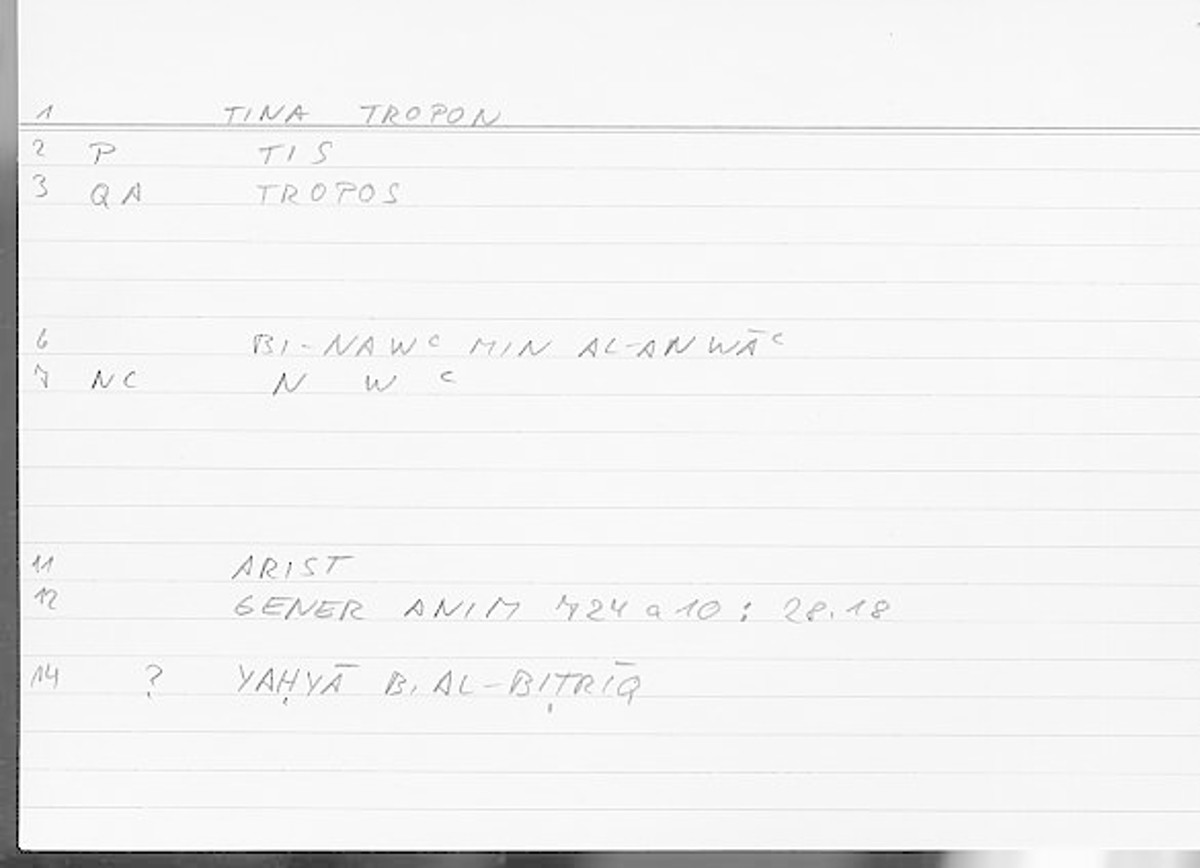 1 TINA TROPON
2 P TIS
3 QA TROPOS
6 BI-NAWʿ MIN AL-ANWĀʿ
7 NC N W ʿ
11 ARIST
12 GENER ANIM 724 a 10 : 28.18
14 ? YAḤYĀ B. AL-BIṬRĪQ